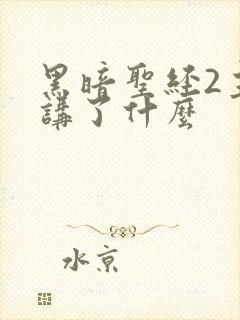 黑暗聖経2主
講了什麼
水京